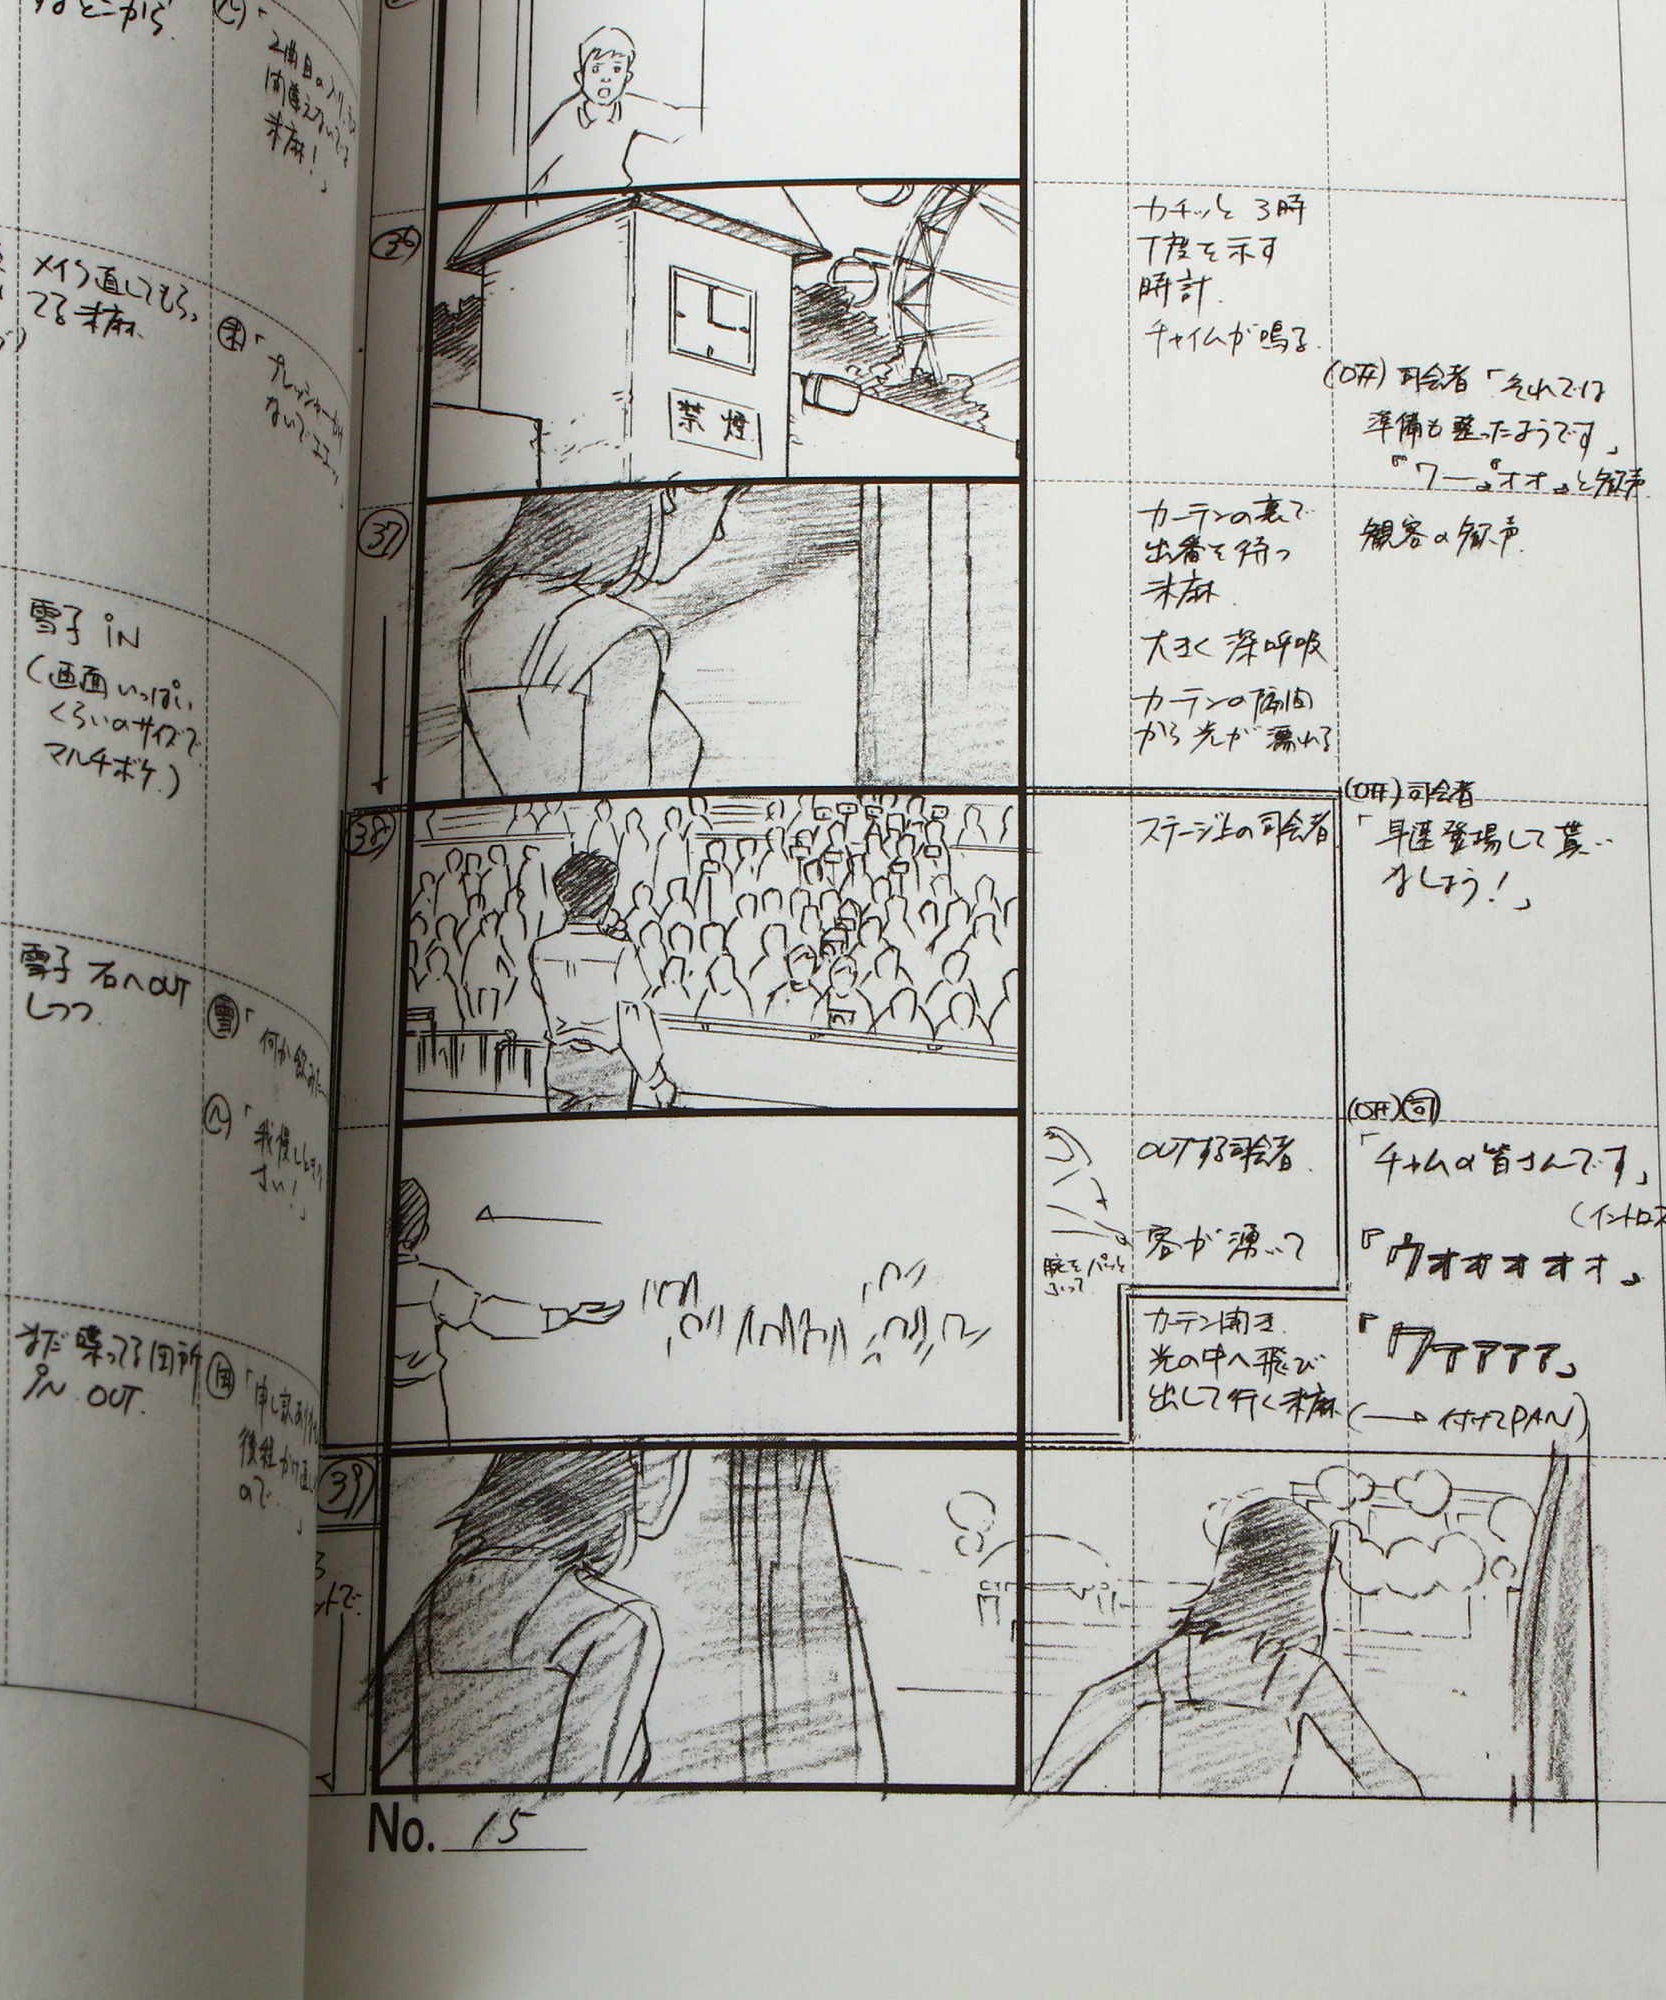 すところから
「2曲目の入り、
間違えないでよ
未麻！」
メイク直してもらっ
てる未麻
未「プレッシャーかけ
ないでヨ
雪子 iN
(画面いっぱい
くらいのサイズで
マルチボケ)
雪子 右へOUT
しつつ
雪「何か飲みたー
「我慢しなさい
さい！」
まだ喋ってる田所
iN OUT.
田「申し訳ありません
後程かけ直し
ので…」
36
禁煙
カチッと 3時
丁度を示す
時計.
チャイムが鳴る.
(OFF) 司会者「それでは
準備も整ったようです」
『ワー』『オオ』と歓声
37
カーテンの裏で
出番を待つ
未麻.
大きく深呼吸
カーテンの隙間
から光が漏れる
観客の歓声.
38
ステージ上の司会者
(OFF) 司会者
「早速登場して貰い
ましょう！」
腕をパッと
ふって
OUTする司会者.
客が湧いて
(OFF) 司
「チャムの皆さんです」
(イントロス
『ウオオオオオ』
カーテン開き
光の中へ飛び
出して行く未麻
『ワァァァァ』
(→ 付けてPAN)
39
ントで.
No. 15